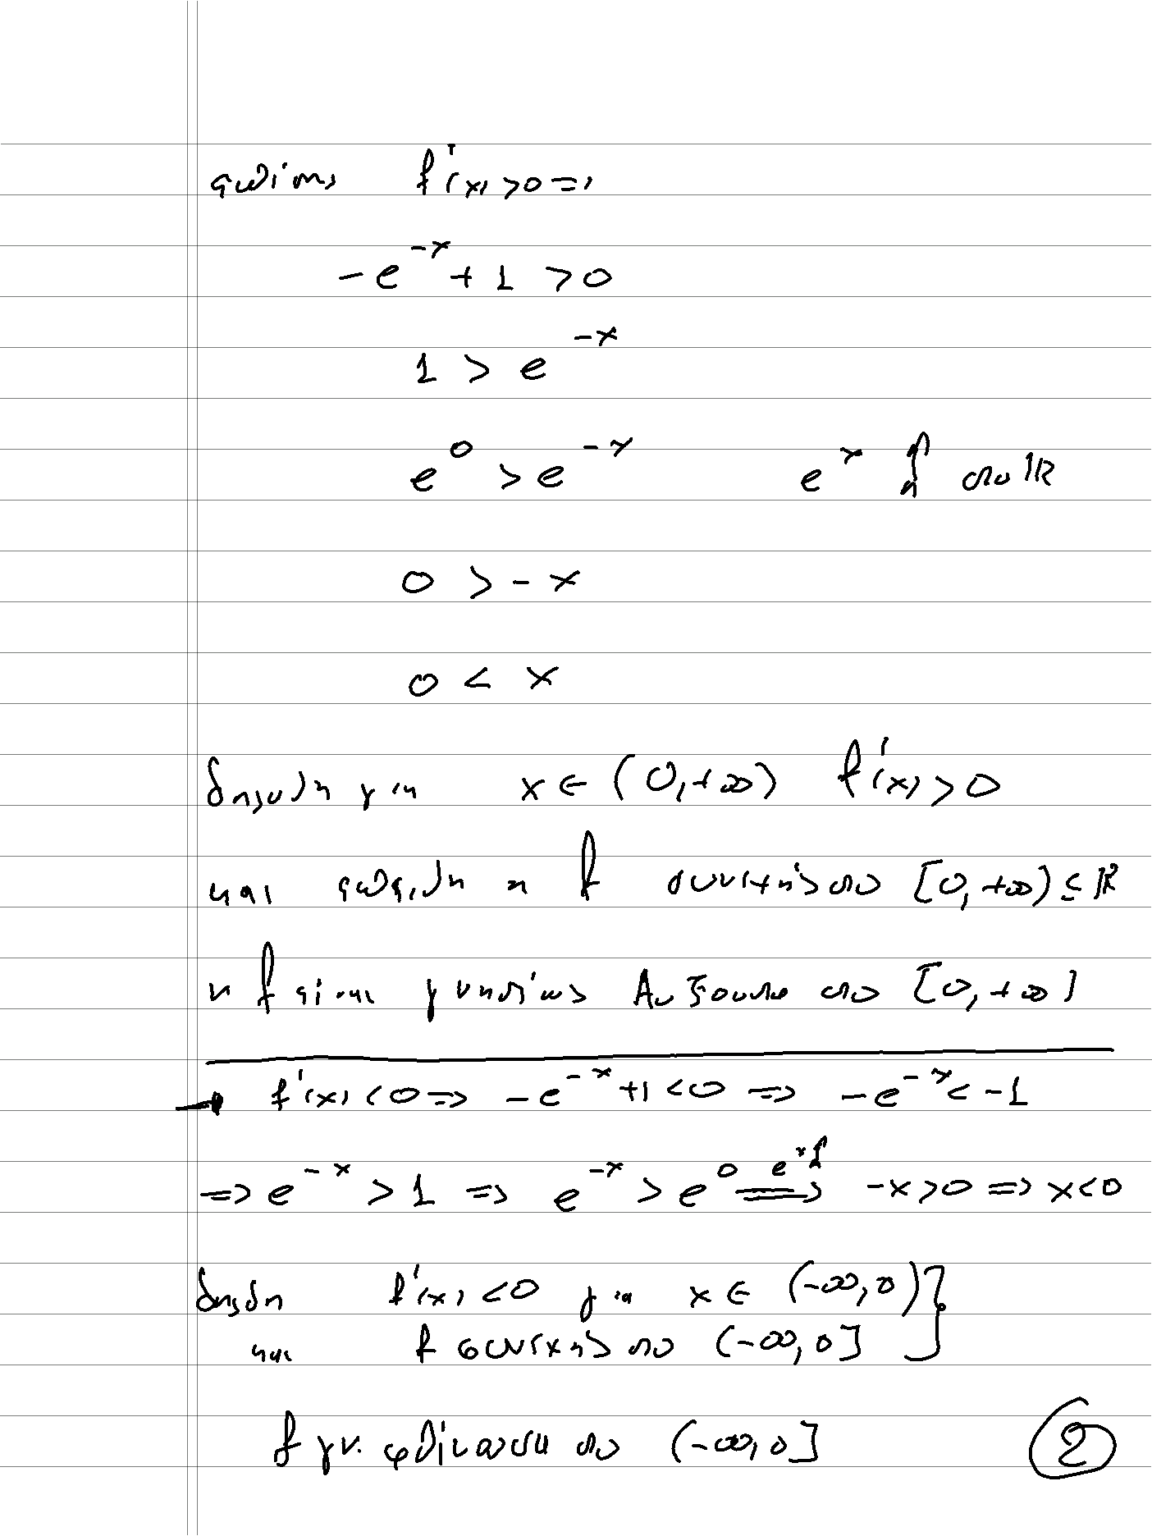 επίσης f'(x)>0 =>
-e^{-x}+1 >0
1 > e^{-x}
e^0 > e^{-x} e^x ↑ στο ℝ
0 > -x
0 < x
δηλαδή για x ∈ (0,+∞) f'(x)>0
και επειδή η f συνεχής στο [0,+∞) ⊆ ℝ
η f είναι γνησίως Αύξουσα στο [0,+∞)
→ f'(x)<0 => -e^{-x}+1<0 => -e^{-x}<-1
=> e^{-x} > 1 => e^{-x} > e^0 e^x↑ => -x>0 => x<0
δηλδη f'(x)<0 για x ∈ (-∞,0) }
και f συνεχής στο (-∞,0]
f γν. φθίνουσα στο (-∞,0] 2